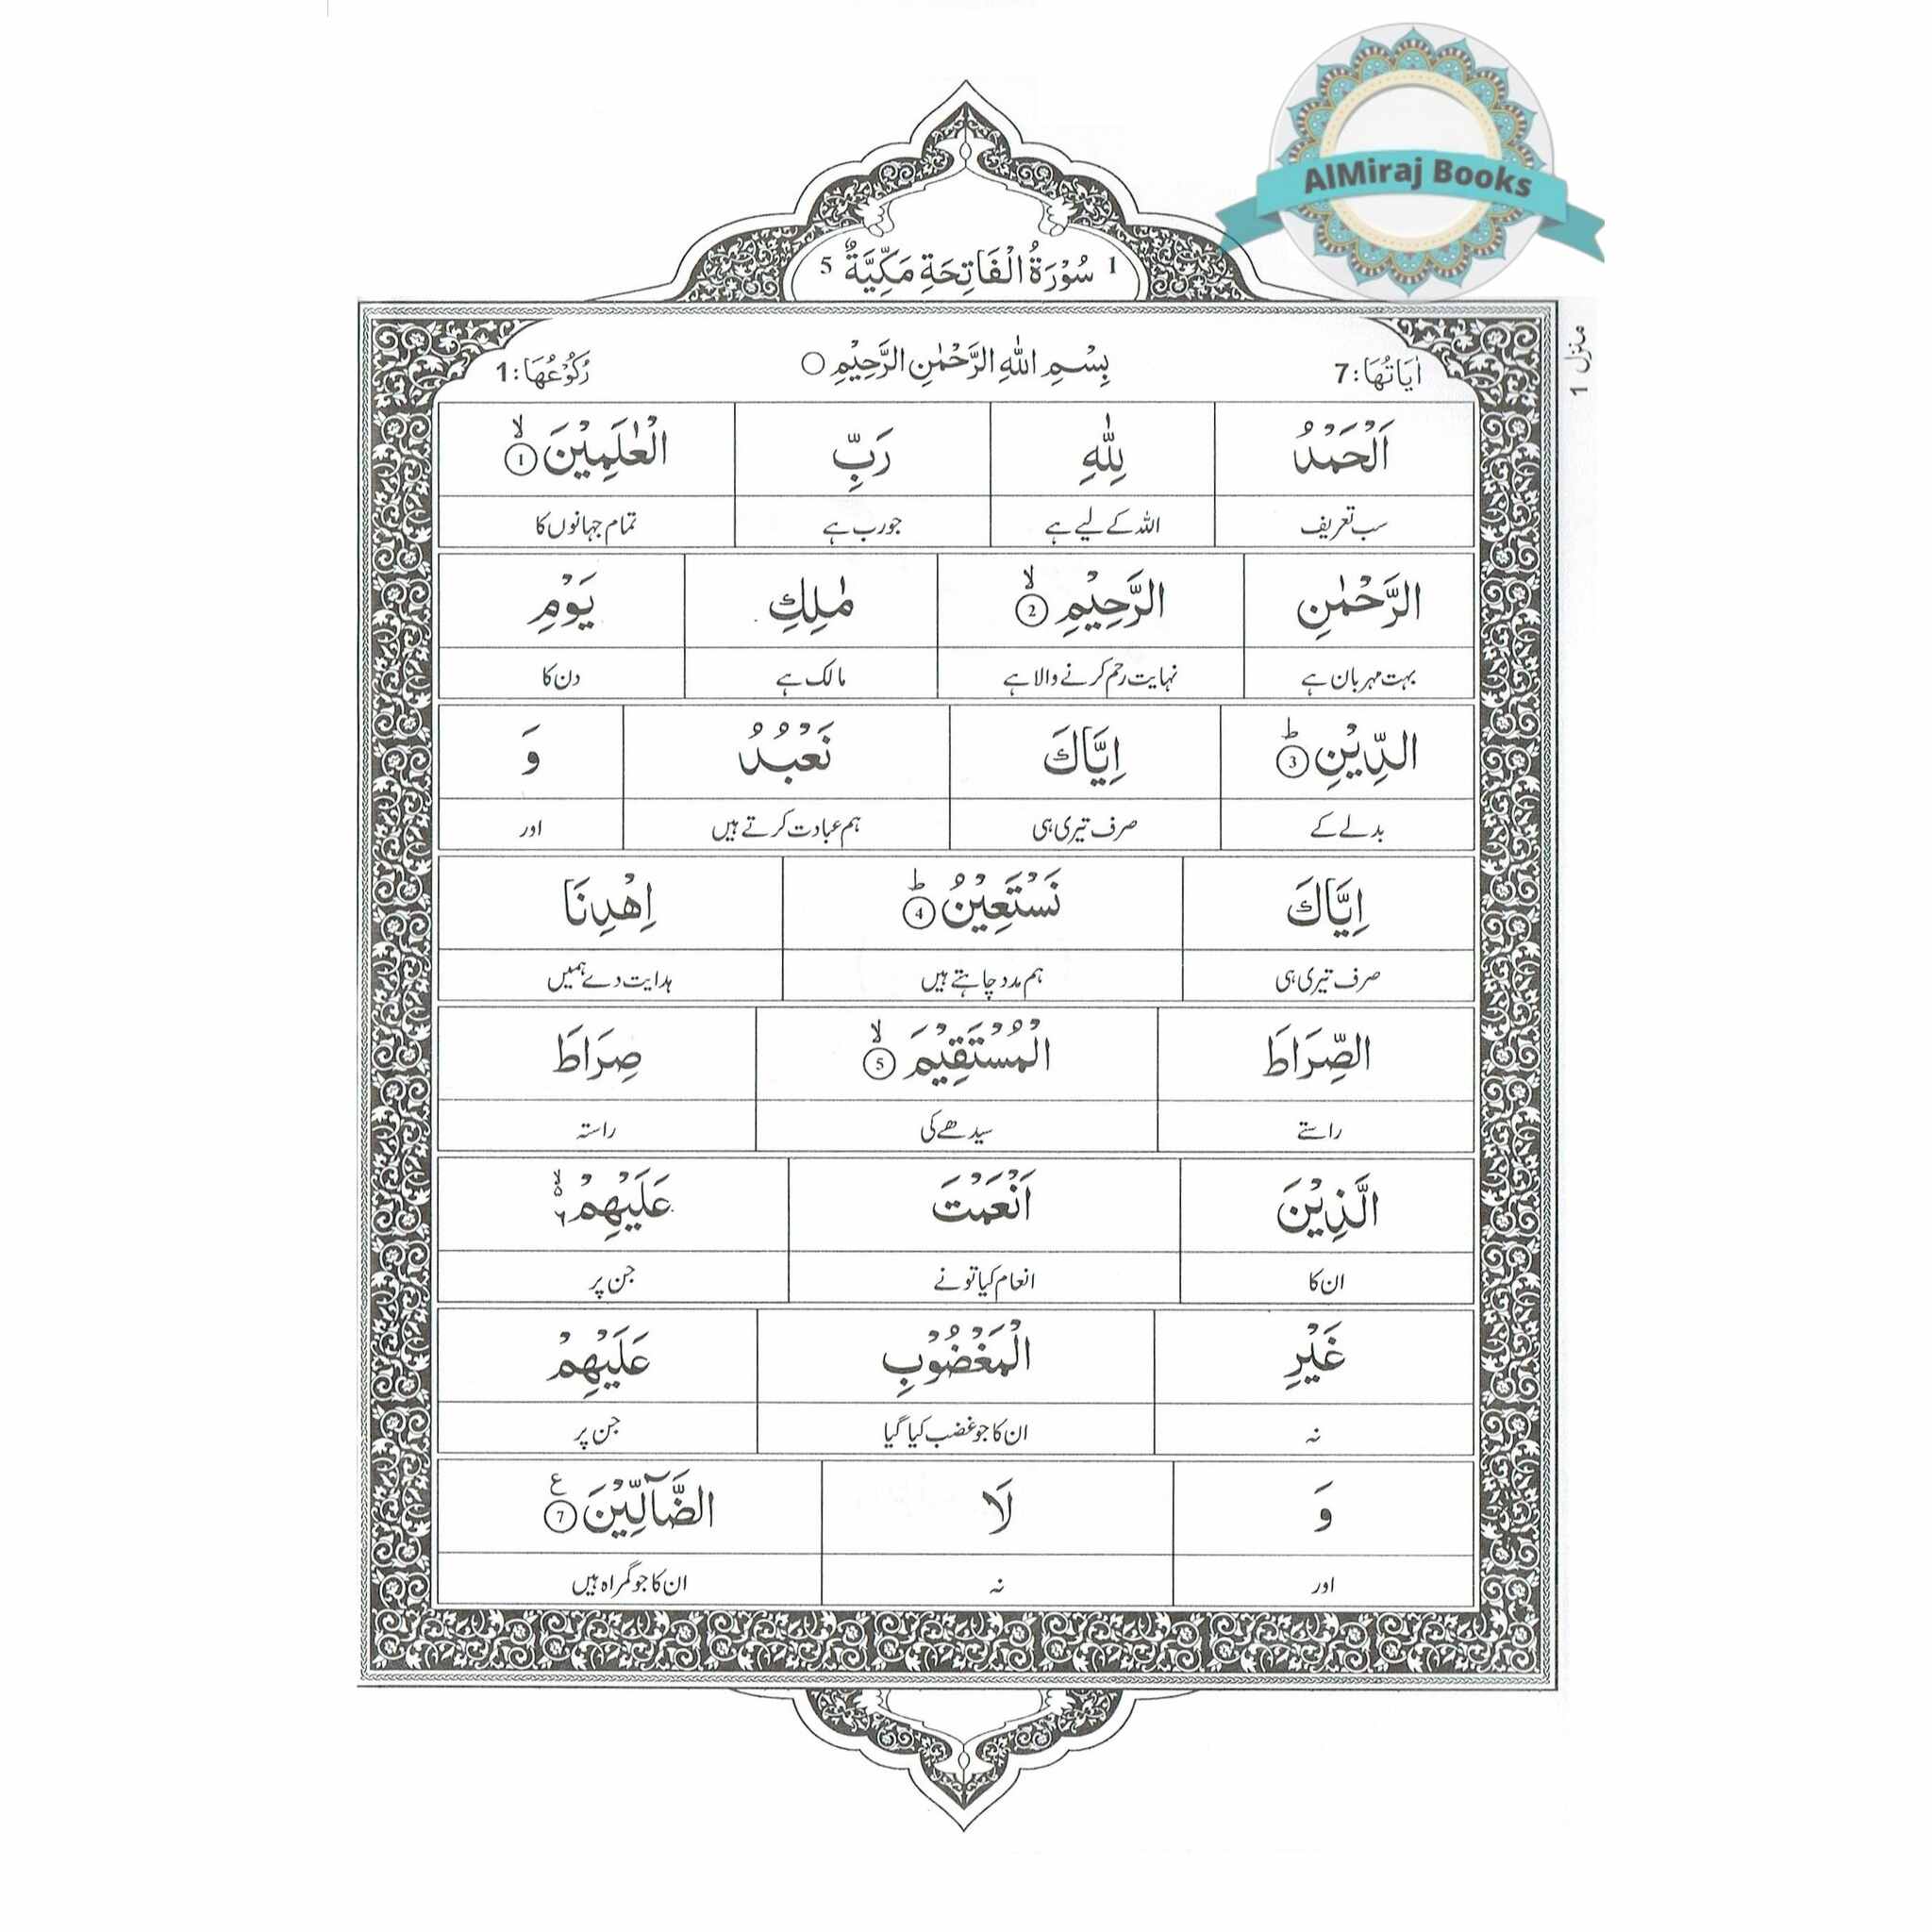 AlMiraj Books
1 سُوْرَةُ الْفَاتِحَةِ مَكِّيَّةٌ 5
منزل 1
اٰيَاتُهَا: 7 بِسْمِ اللّٰهِ الرَّحْمٰنِ الرَّحِيْمِ ○ رُكُوْعُهَا: 1
اَلْحَمْدُ لِلّٰهِ رَبِّ الْعٰلَمِيْنَ ۙ 1
سب تعریف اللہ کے لیے ہے جو رب ہے تمام جہانوں کا
الرَّحْمٰنِ الرَّحِيْمِ ۙ 2 مٰلِكِ يَوْمِ
بہت مہربان ہے نہایت رحم کرنے والا ہے مالک ہے دن کا
الدِّيْنِ ؕ 3 اِيَّاكَ نَعْبُدُ وَ
بدلے کے صرف تیری ہی ہم عبادت کرتے ہیں اور
اِيَّاكَ نَسْتَعِيْنُ ؕ 4 اِهْدِنَا
صرف تیری ہی ہم مدد چاہتے ہیں ہدایت دے ہمیں
الصِّرَاطَ الْمُسْتَقِيْمَ ۙ 5 صِرَاطَ
راستے سیدھے کی راستہ
الَّذِيْنَ اَنْعَمْتَ عَلَيْهِمْ ۙ۬ ۶
ان کا انعام کیا تو نے جن پر
غَيْرِ الْمَغْضُوْبِ عَلَيْهِمْ
نہ ان کا جو غضب کیا گیا جن پر
وَ لَا الضَّآلِّيْنَ ع 7
اور نہ ان کا جو گمراہ ہیں